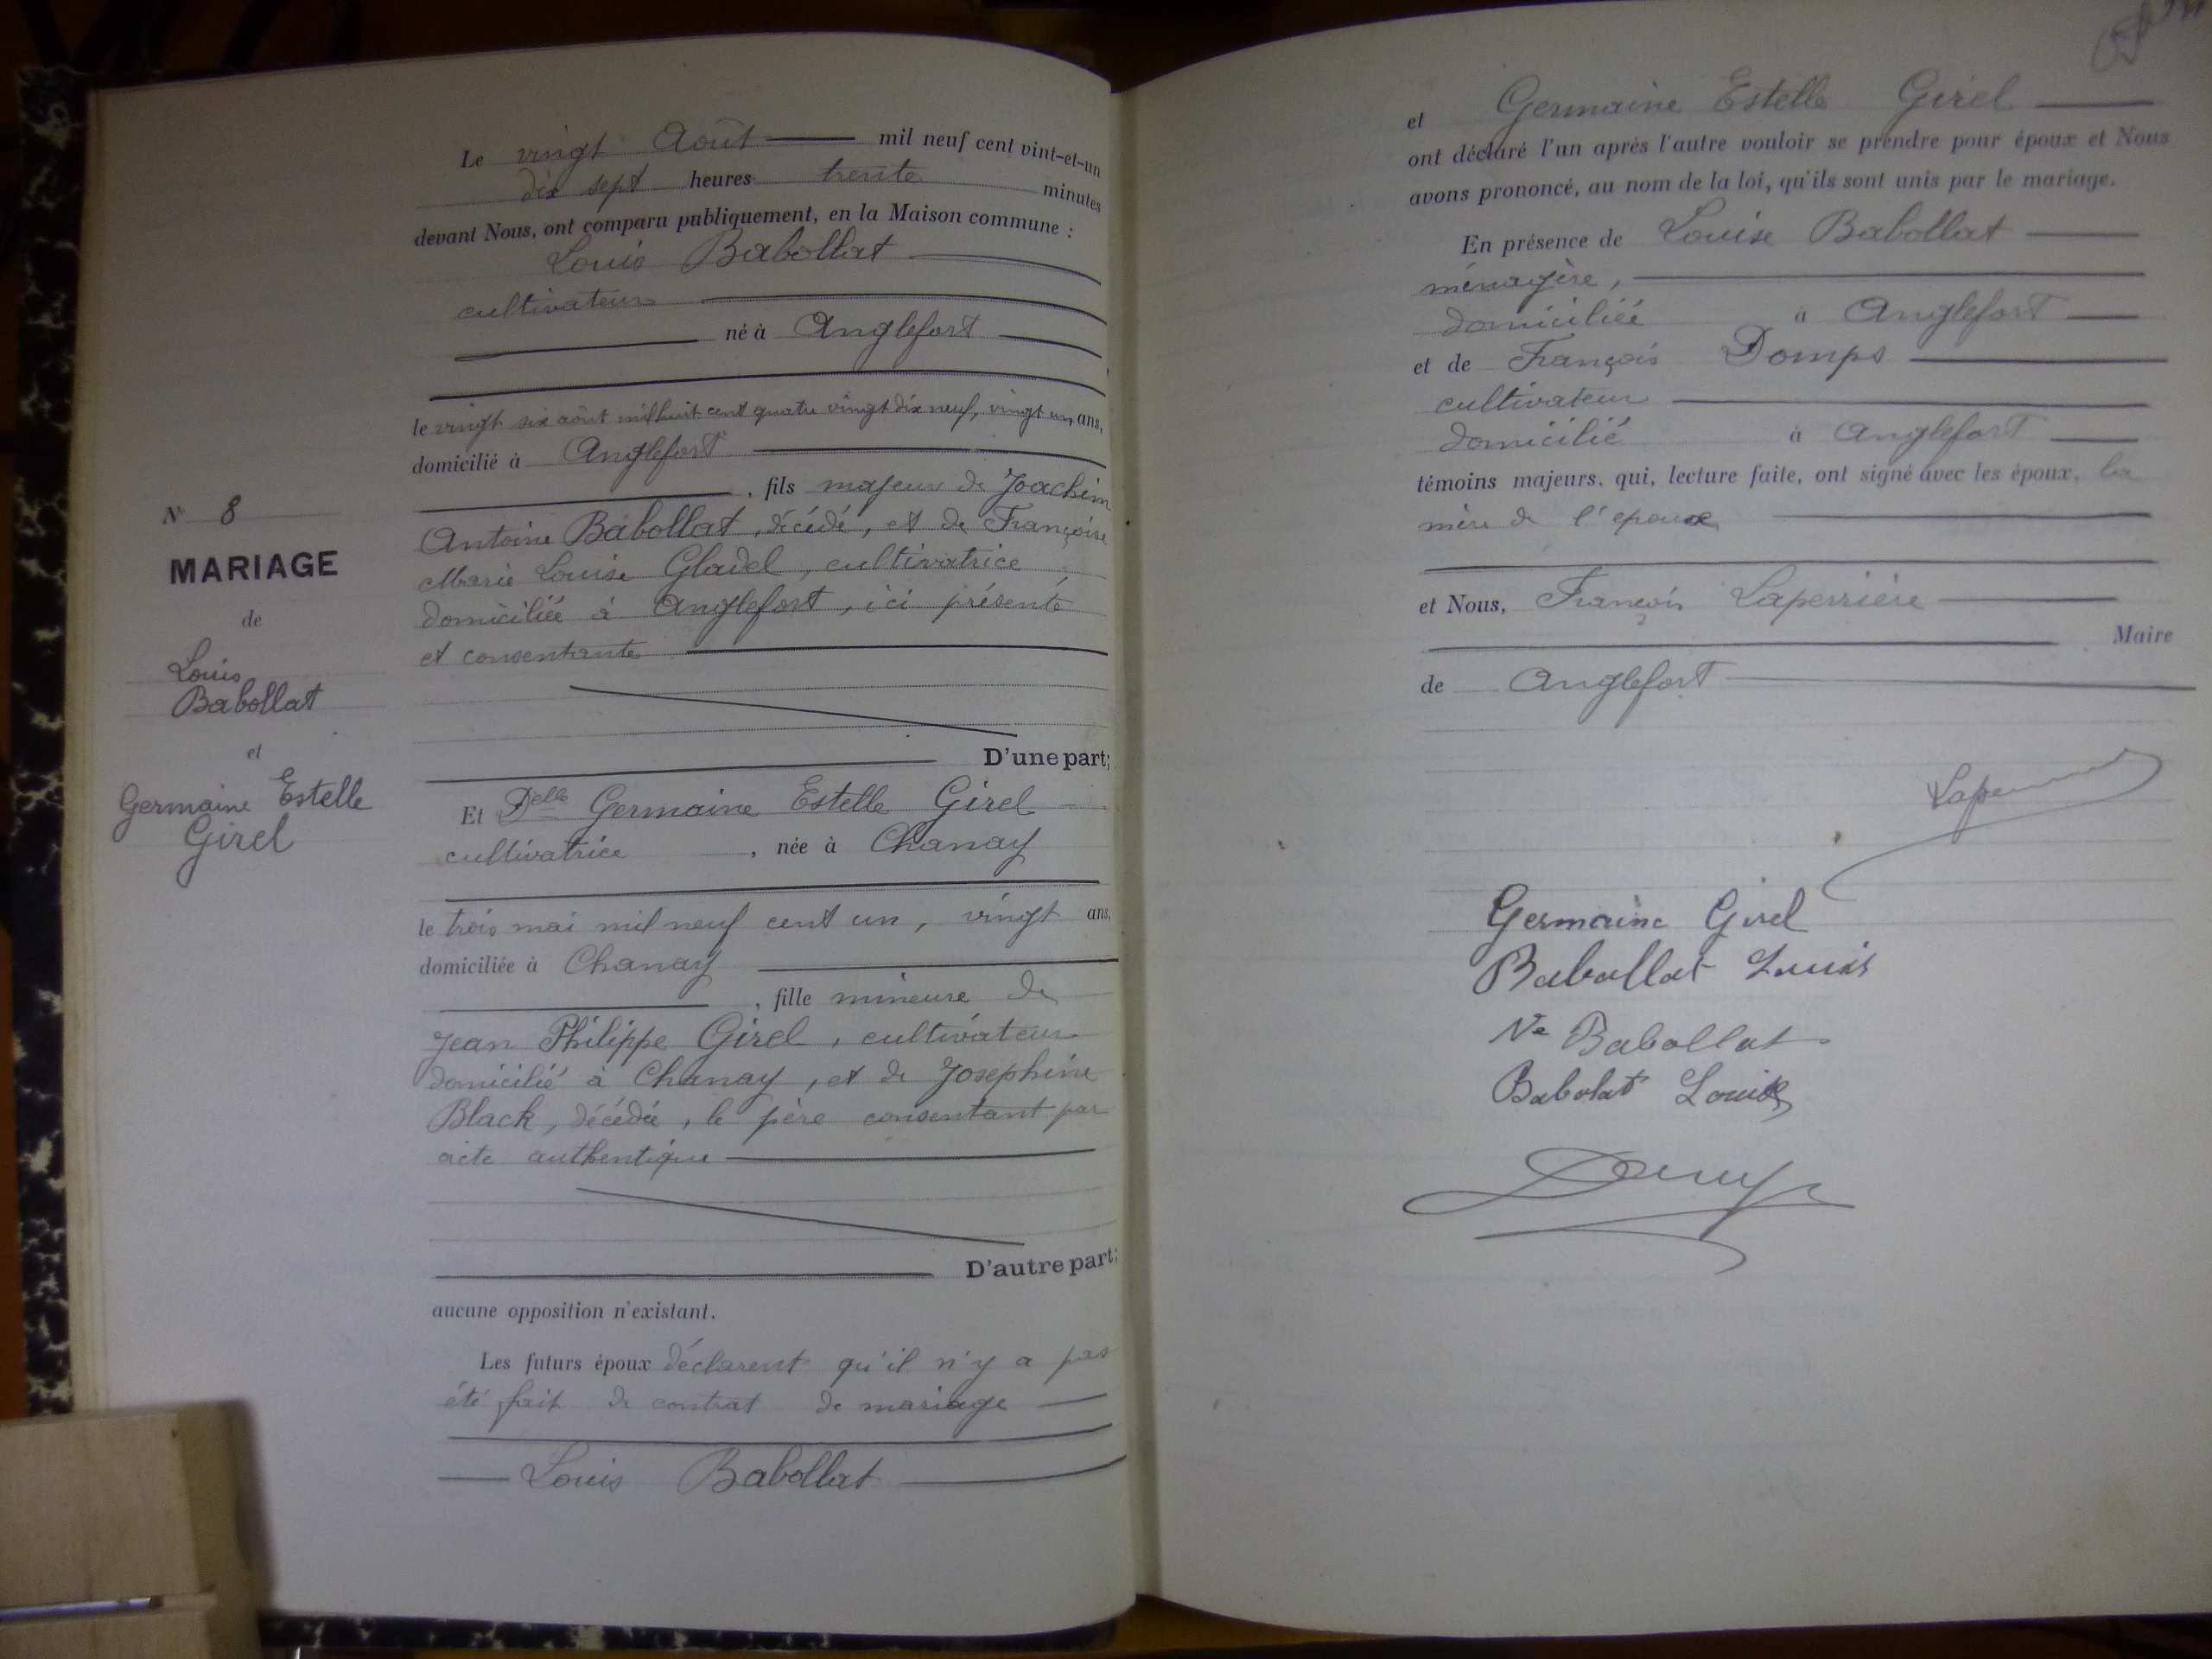 N° 8
MARIAGE
de
Louis
Babollat
et
Germaine Estelle
Girel
Le vingt Août mil neuf cent vint-et-un
dix sept heures trente minutes
devant Nous, ont comparu publiquement, en la Maison commune :
Louis Babollat
cultivateur
né à Anglefort
le vingt six août mil huit cent quatre vingt dix neuf, vingt un ans,
domicilié à Anglefort
, fils majeur de Joachim
Antoine Babollat, décédé, et de Françoise
Marie Louise Gladel, cultivatrice
domiciliée à Anglefort, ici présente
et consentante
D'une part;
Et Delle Germaine Estelle Girel
cultivatrice , née à Chanay
le trois mai mil neuf cent un, vingt ans,
domiciliée à Chanay
, fille mineure de
Jean Philippe Girel, cultivateur
domicilié à Chanay, et de Josephine
Black, décédée, le père consentant par
acte authentique
D'autre part;
aucune opposition n'existant.
Les futurs époux déclarent qu'il n'y a pas
été fait de contrat de mariage
Louis Babollat
et Germaine Estelle Girel
ont déclaré l'un après l'autre vouloir se prendre pour époux et Nous
avons prononcé, au nom de la loi, qu'ils sont unis par le mariage.
En présence de Louise Babollat
ménagère,
domiciliée à Anglefort
et de François Domps
cultivateur
domicilié à Anglefort
témoins majeurs. qui, lecture faite, ont signé avec les époux, la
mère de l'époux
et Nous, François Laperrière
Maire
de Anglefort
Germaine Girel
Babollat Louis
Ve Babollat
Babolat Louise